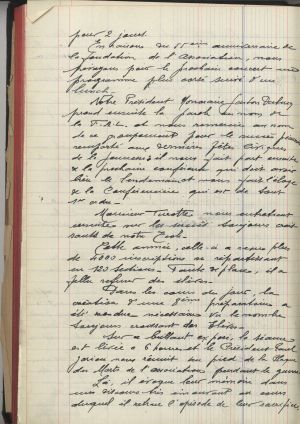 pour 2 jours.
En raison du 55ième anniversaire de
la fondation de l'Association, nous
pour le prochain concert une
programme plus corsé suivi d'un
lunch.
Notre Président Honoraire Gaston
prend ensuite la parole au nom de
la F.R.L. et nous remercie au nom
de ce groupement pour le succès
remporté aux dernières fêtes civiques
de la jeunesse; il nous fait part ensuite
de la prochaine conférence qui doit avoir
lieu le lendemain et nous fait l'éloge
de la Conférencière qui est de tout
1er ordre.
Monsieur Turotte nous entretient
ensuite sur les succès toujours crois-
sants de notre Ecole.
Cette année, celle-ci a reçu plus
de 4000 inscriptions se répartissant
en 120 sections. Faute de place, il a
fallu refuser des élèves.
Dans les cours de jour, la
création d'une 8ème préparatoire a
été rendue nécessaire vu le nombre
toujours croissant des élèves.
la séance
est levée à 6 heures et le Président
nous réunit au pied de la Plaque
des Morts de l'Association pendant la guerre.
Là, il évoque leur mémoire dans
un discours très émouvant au cours
duquel il retrace l'épisode de leur sacrifice